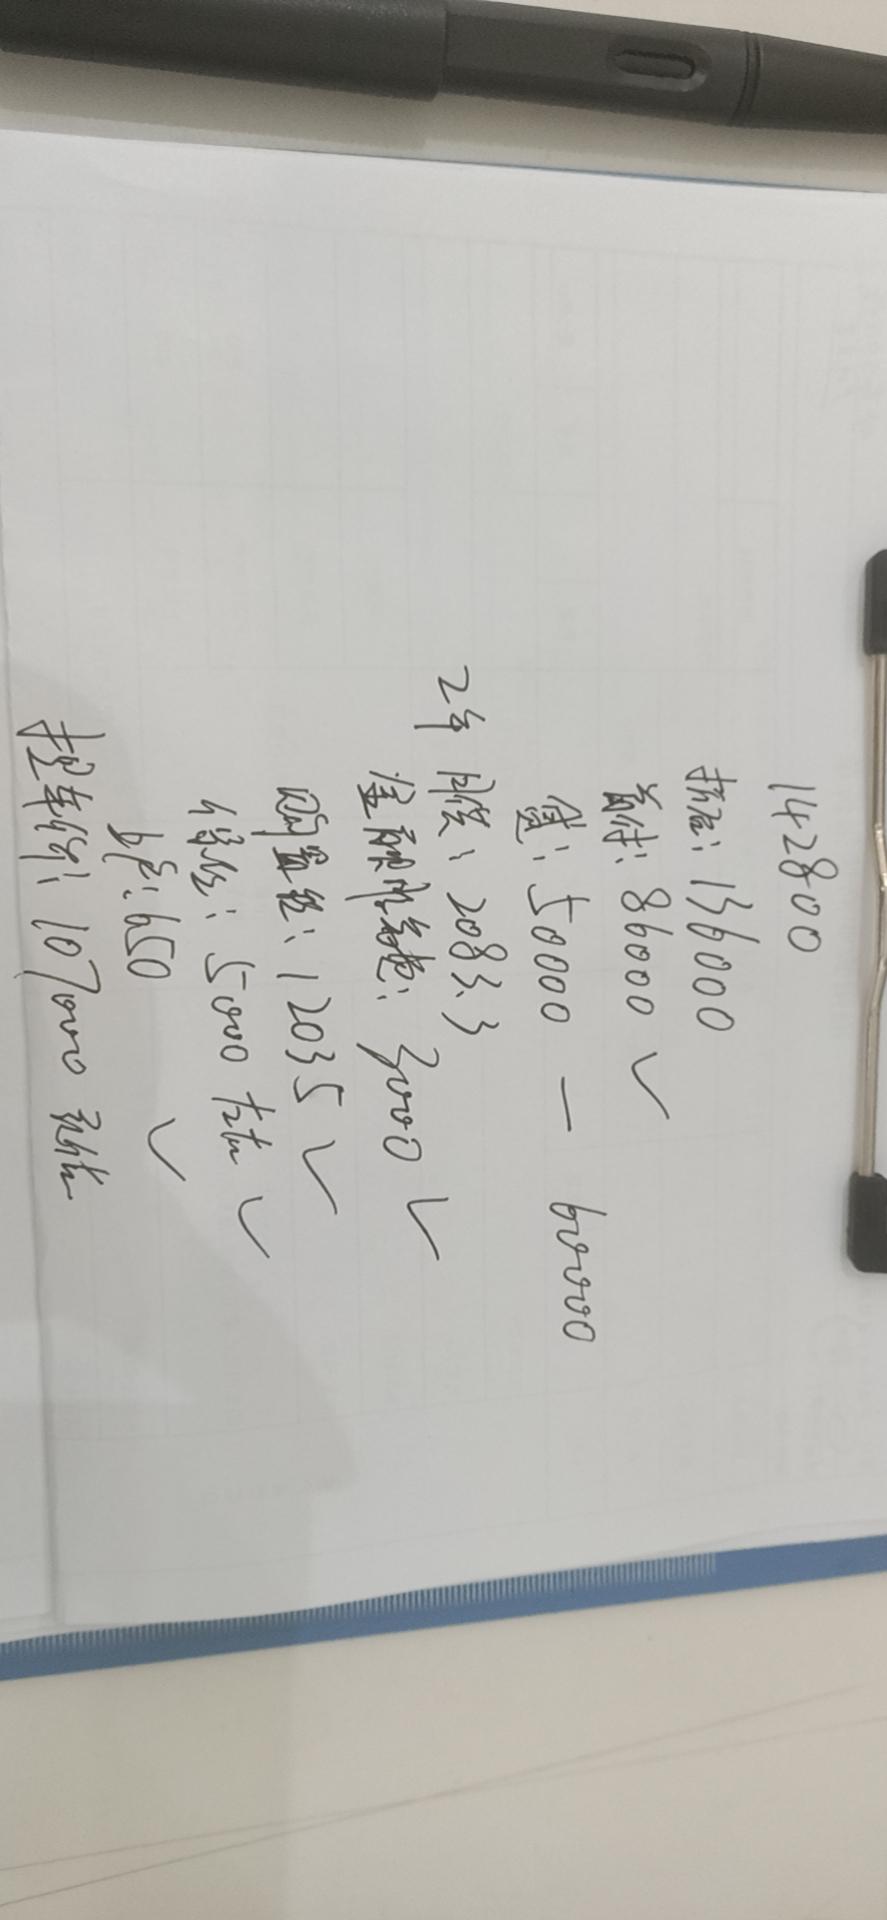 142800
抵后:136000
首付:86000 ✓
贷:50000 — 60000
2年 月供:2083.3
金融服务费:3000 ✓
购置税:12035 ✓
保险:5000左右 ✓
上户:650 ✓
提车价:107000 现估